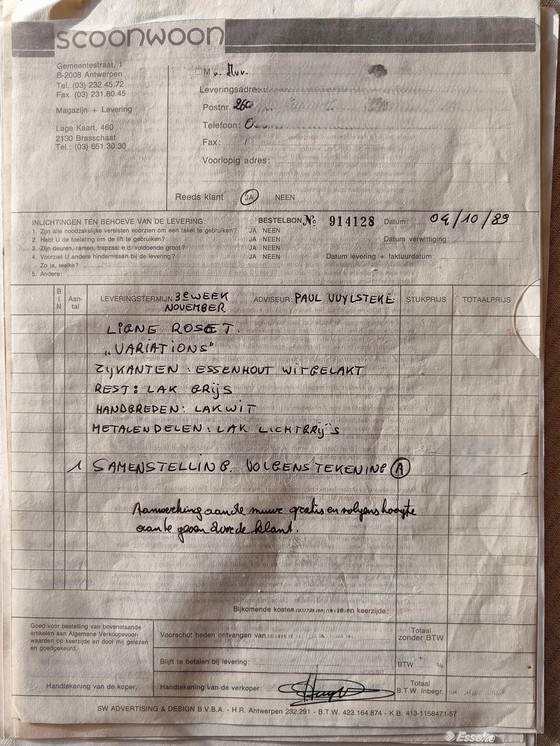 scoonwoon
Gemeentestraat, 1
B-2008 Antwerpen
Tel. (03) 232.45.72
Fax. (03) 231.80.45
Magazijn + Levering
Lage Kaart, 460
2130 Brasschaat
Tel.: (03) 651.30.30
M
Leveringsadres:
Postnr.
Telefoon:
Fax:
Voorlopig adres:
Reeds klant JA NEEN
INLICHTINGEN TEN BEHOEVE VAN DE LEVERING: BESTELBON No 914128 Datum: 04/10/89
1. Zijn alle noodzakelijke vereisten voorzien om een takel te gebruiken? JA NEEN
2. Hebt U de toelating om de lift te gebruiken? JA NEEN Datum verwittiging:
3. Zijn deuren, ramen, trappas e.d. voldoende groot? JA NEEN
4. Voorziet U andere hindernissen bij de levering? JA NEEN Datum levering + faktuurdatum
Zo ja, welke?
5. Andere:
BIN Aantal LEVERINGSTERMIJN 3e WEEK NOVEMBER ADVISEUR: PAUL VUYLSTEKE STUKPRIJS TOTAALPRIJS
LIGNE ROSET.
„VARIATIONS"
ZIJKANTEN: ESSENHOUT WITGELAKT
REST: LAK GRIJS
HANDGREDEN: LAK WIT
METALEN DELEN: LAK LICHTGRIJS
1 SAMENSTELLING VOLGENS TEKENING A
Aanwerking aan de muur gratis en volgens hoogte
aan te geven door de klant.
Bijkomende kosten keerzijde:
Goed voor bestelling van bovenstaande
artikelen aan Algemene Verkoopsvoorwaarden
op keerzijde en door mij gelezen
en goedgekeurd.
Voorschot heden ontvangen van
Totaal zonder BTW
Blijft te betalen bij levering:
BTW %
Handtekening van de koper,
Handtekening van de verkoper,
Totaal B.T.W. inbegr.
SW ADVERTISING & DESIGN B.V.B.A. - H.R. Antwerpen 232.291 - B.T.W. 423.164.874 - K.B. 413-1158471-57